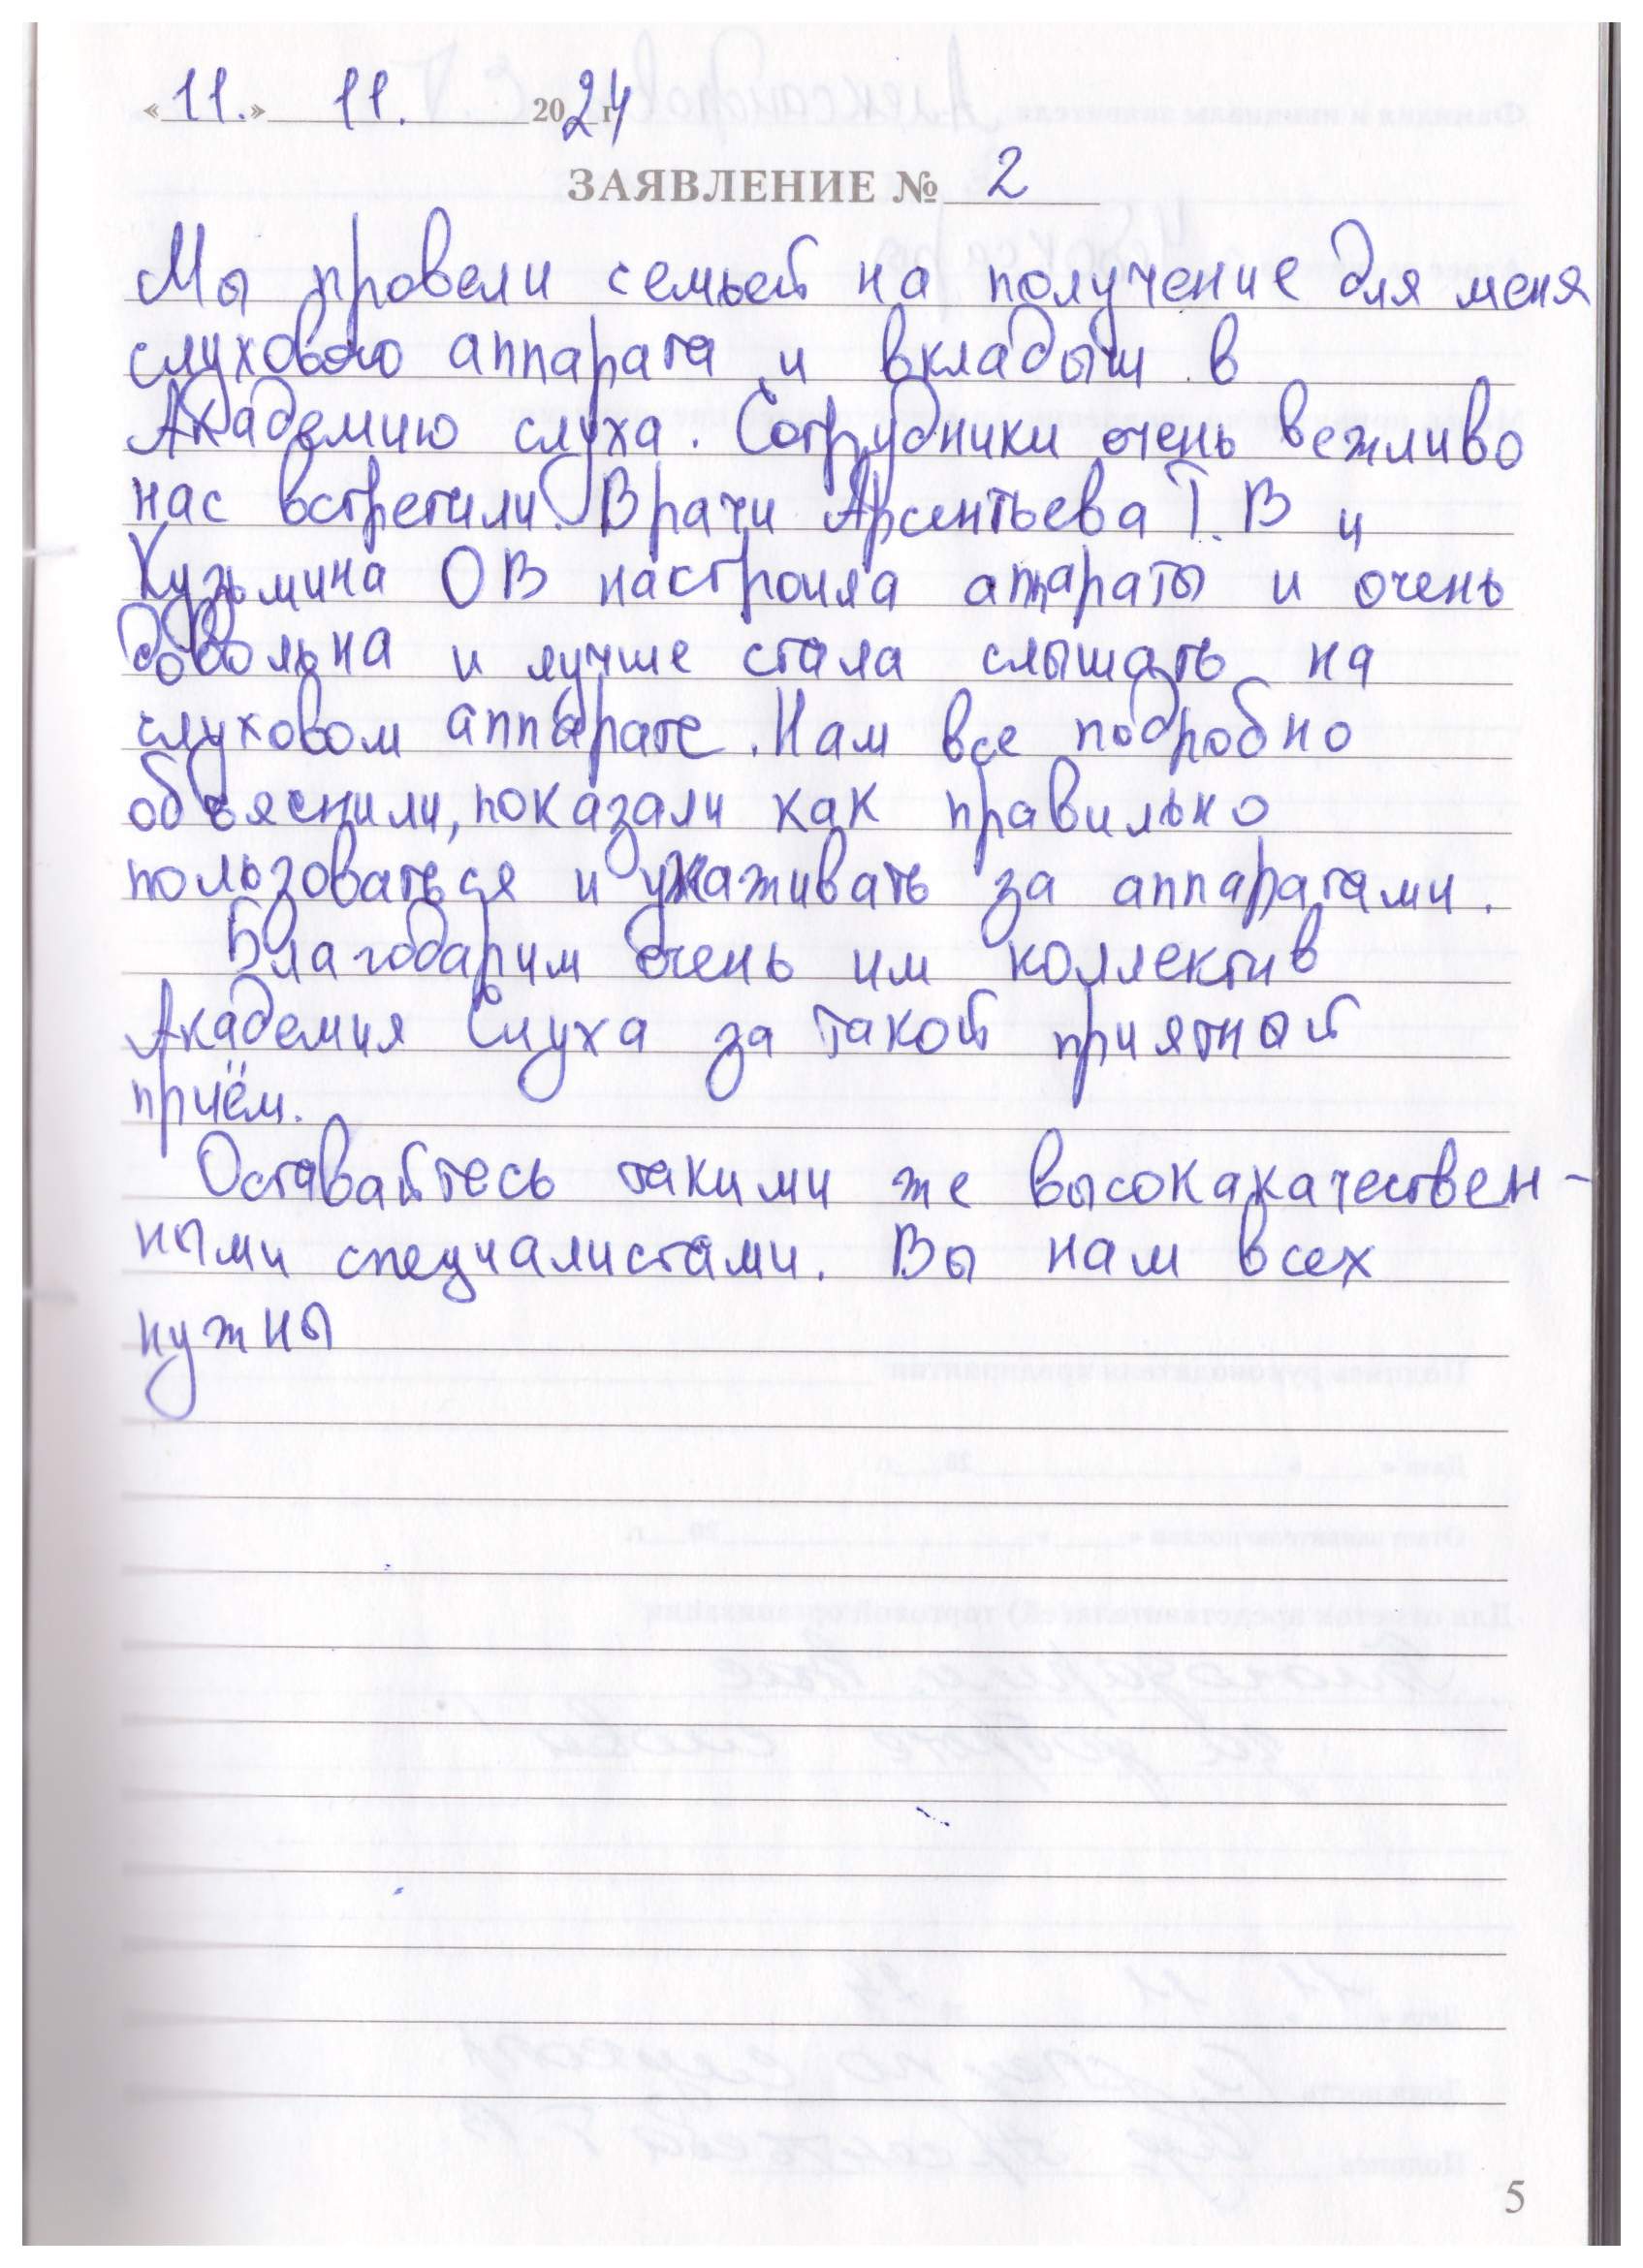 «11.» 11. 2024 г.
ЗАЯВЛЕНИЕ № 2
Мы провели семьей на получение для меня
слухового аппарата и вкладыш в
Академию слуха. Сотрудники очень вежливо
нас встретили. Врачи Арсентьева Т.В и
Кузьмина ОВ настроила аппараты и очень
довольна и лучше стала слышать на
слуховом аппарате. Нам все подробно
объяснили, показали как правильно
пользоваться и ухаживать за аппаратами.
Благодарим очень им коллектив
Академия Слуха за такой приятной
приём.
Оставайтесь такими же высокакачествен-
ными специалистами. Вы нам всех
нужны
5